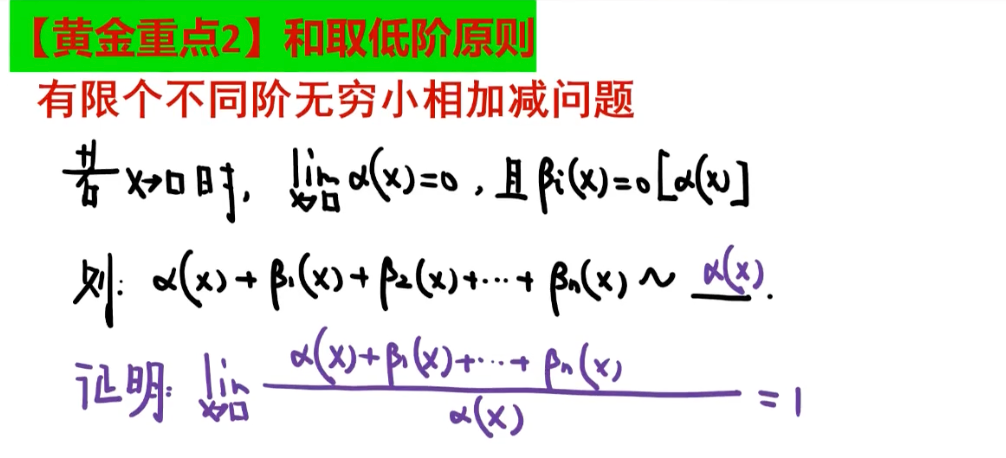 【黄金重点2】和取低阶原则
有限个不同阶无穷小相加减问题
若x→□时, lim x→□ α(x)=0, 且βi(x)=o[α(x)]
则: α(x)+β₁(x)+β₂(x)+⋯+βn(x)~α(x).
证明: lim x→□ (α(x)+β₁(x)+⋯+βn(x))/α(x) =1